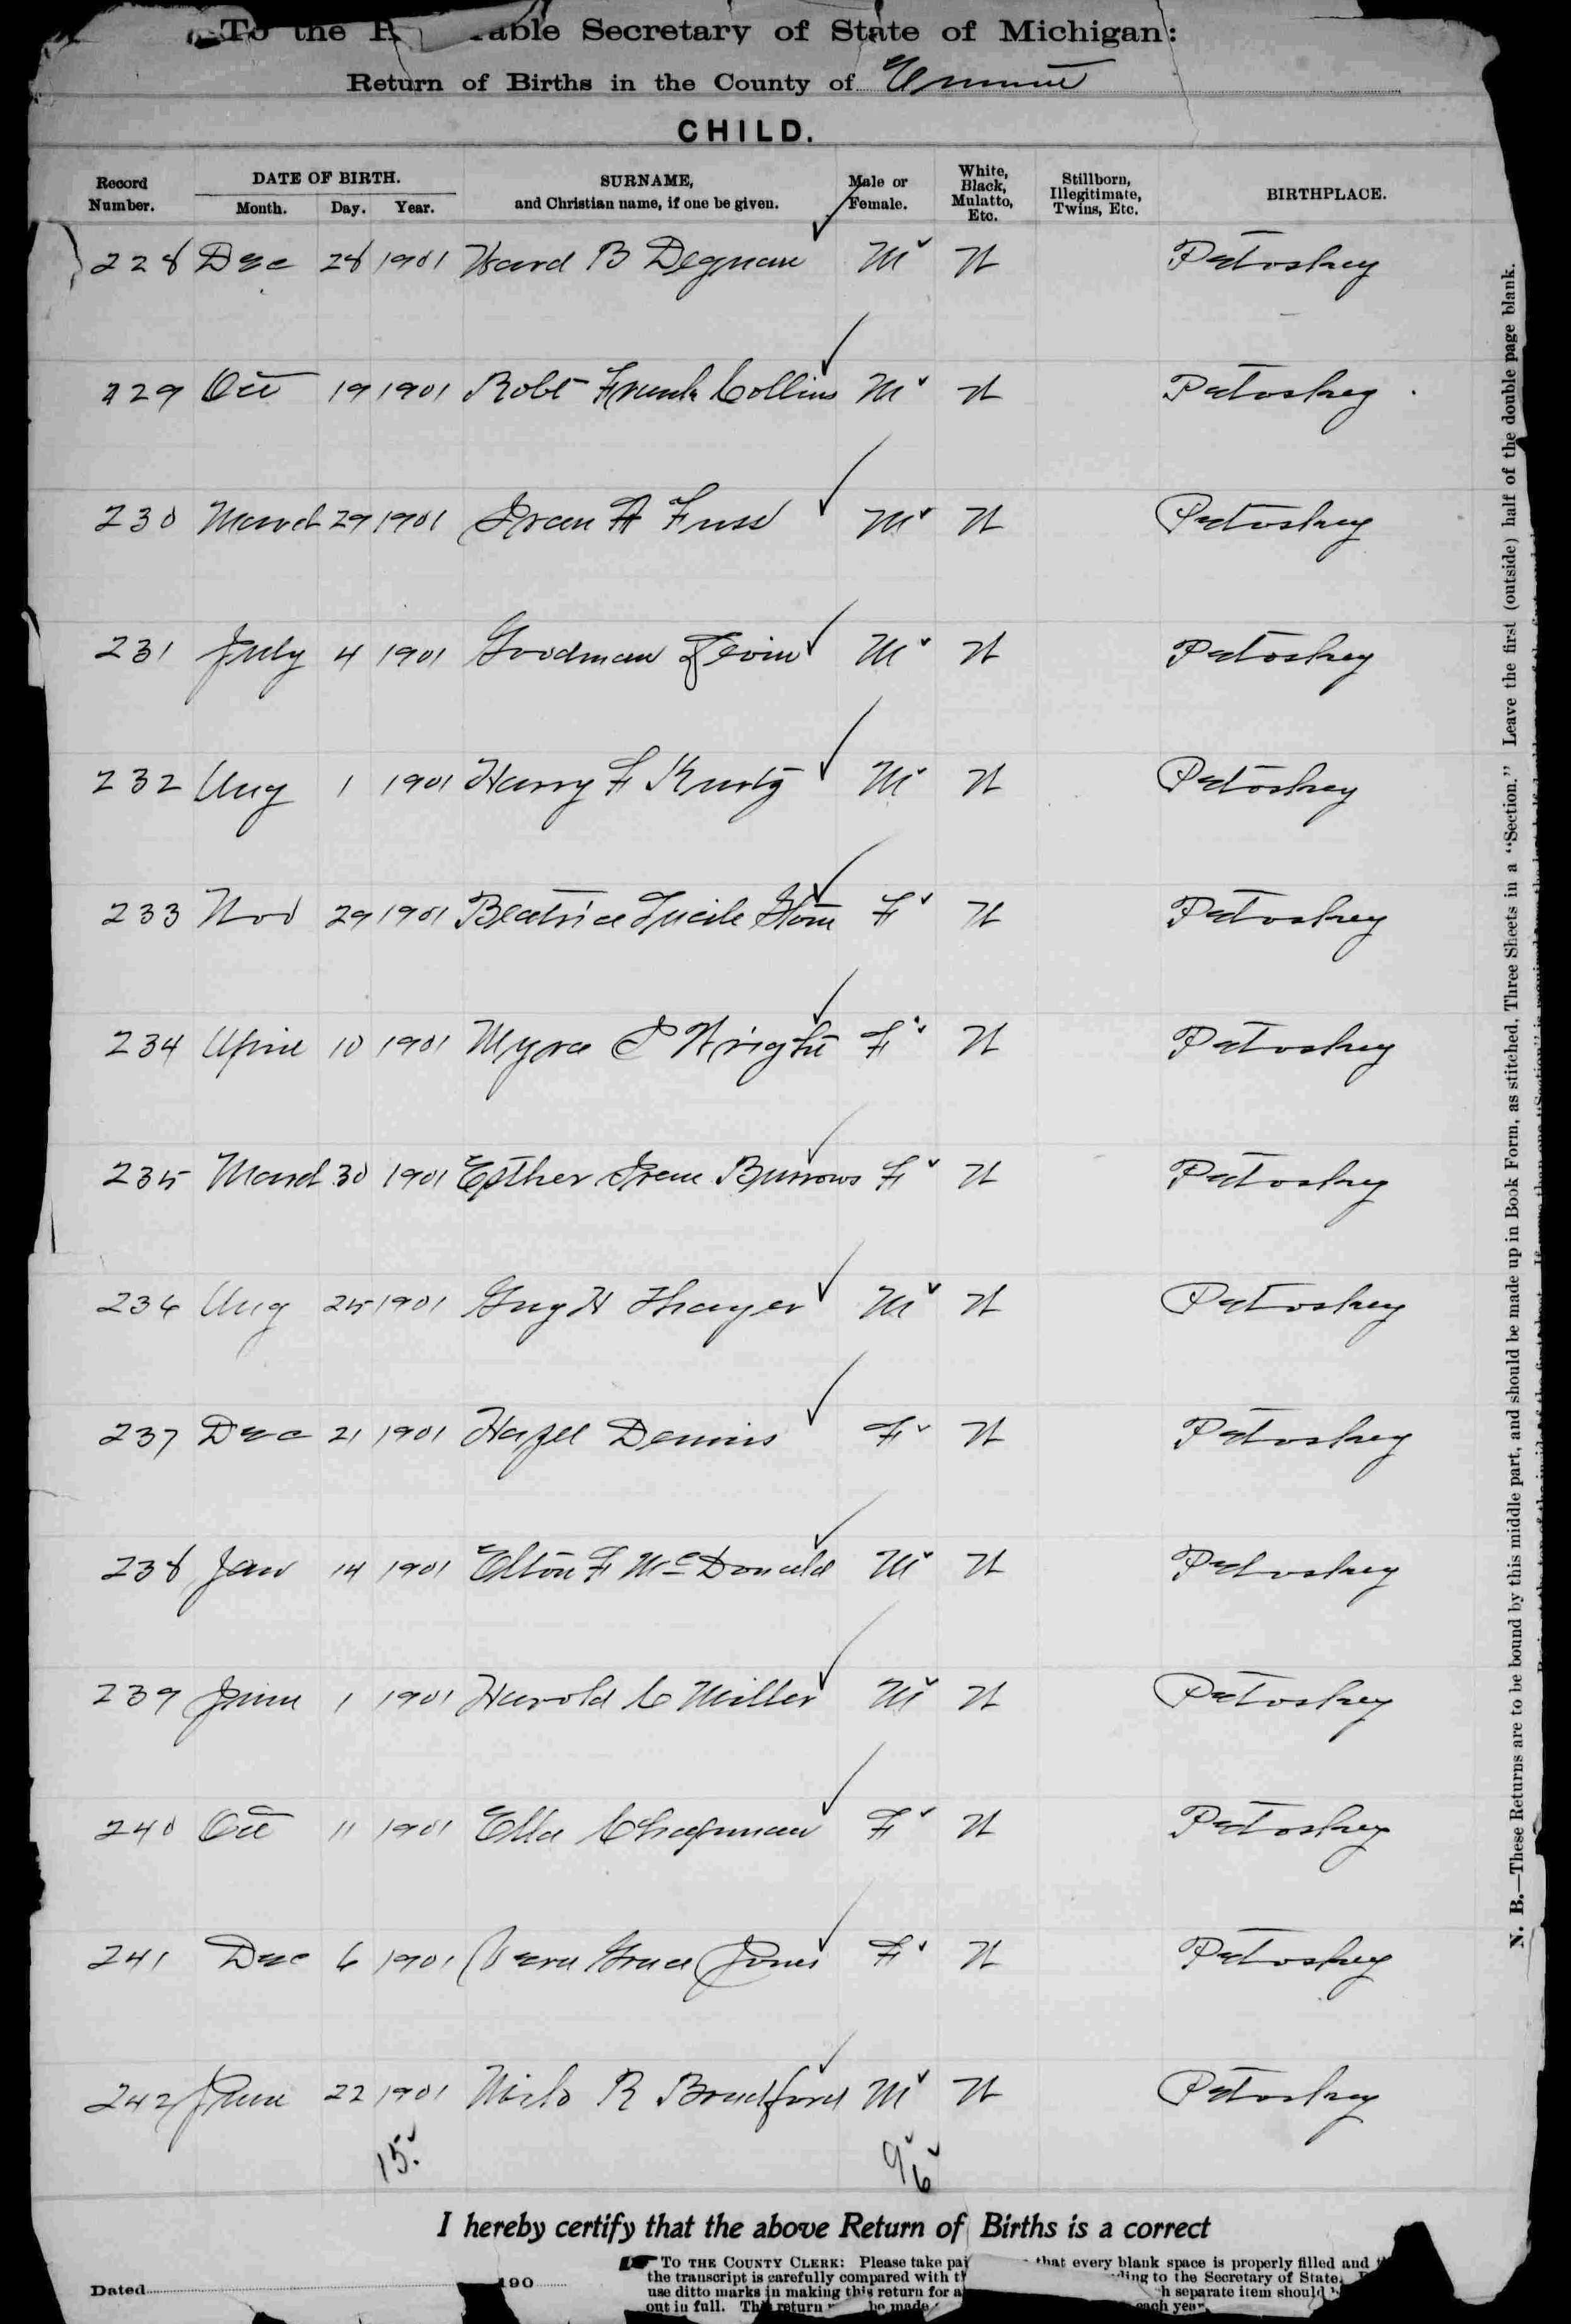 To the able Secretary of State of Michigan:
Return of Births in the County of Emmet
CHILD.
Record Number. DATE OF BIRTH. Month. Day. Year. SURNAME, and Christian name, if one be given. Male or Female. White, Black, Mulatto, Etc. Stillborn, Illegitimate, Twins, Etc. BIRTHPLACE.
228 Dec 28 1901 Ward B Degnan M W Petoskey
229 Oct 19 1901 Robt Frank Collins M W Petoskey
230 March 29 1901 Ivan A Fuss M W Petoskey
231 July 4 1901 Goodman Levin M W Petoskey
232 Aug 1 1901 Harry F Kurtz M W Petoskey
233 Nov 29 1901 Beatrice Lucile Stone F W Petoskey
234 April 10 1901 Myra P Wright F W Petoskey
235 March 30 1901 Esther Irene Burrows F W Petoskey
236 Aug 25 1901 Guy H Thayer M W Petoskey
237 Dec 21 1901 Hazel Dennis F W Petoskey
238 Jan 14 1901 Elton F McDonald M W Petoskey
239 June 1 1901 Harold C Miller M W Petoskey
240 Oct 11 1901 Ella Chapman F W Petoskey
241 Dec 6 1901 Vera Grace Jones F W Petoskey
242 June 22 1901 Milo R Bradford M W Petoskey
15. 9/6
I hereby certify that the above Return of Births is a correct
Dated 190
TO THE COUNTY CLERK: Please take that every blank space is properly filled and
the transcript is carefully compared with to the Secretary of State.
use ditto marks in making this return for separate item should
out in full. This return be made each year.
N. B.—These Returns are to be bound by this middle part, and should be made up in Book Form, as stitched, Three Sheets in a "Section." Leave the first (outside) half of the double page blank.